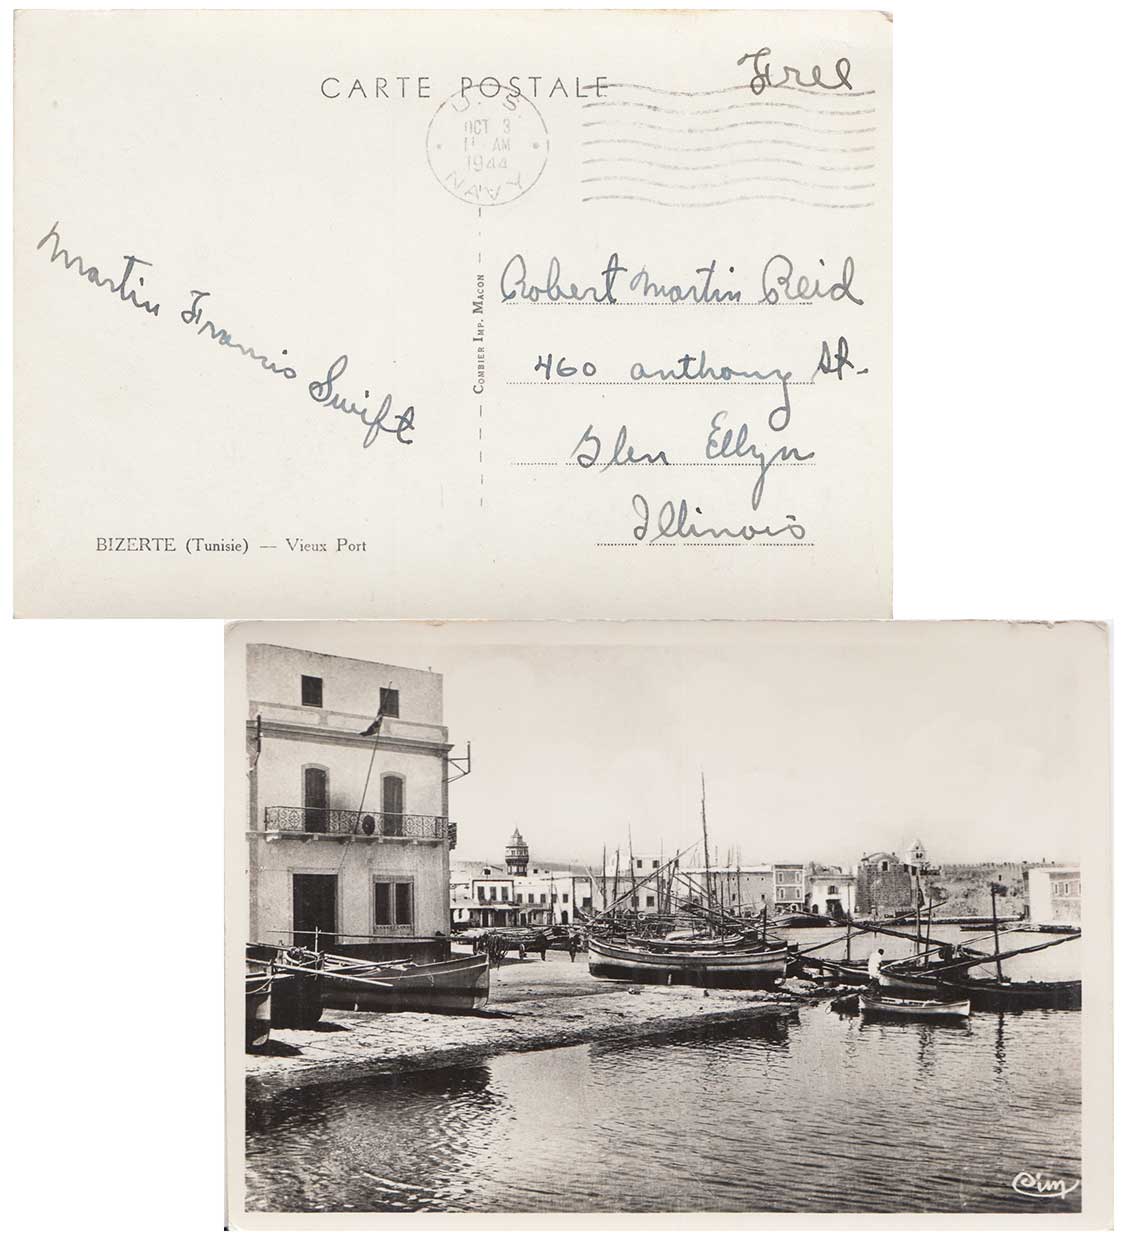 CARTE POSTALE
Free
U. S.
OCT 3
11 AM
1944
NAVY
Martin Francis Swift
COMBIER IMP. MACON
Robert Martin Reid
460 Anthony St.
Glen Ellyn
Illinois
BIZERTE (Tunisie) — Vieux Port
Cim